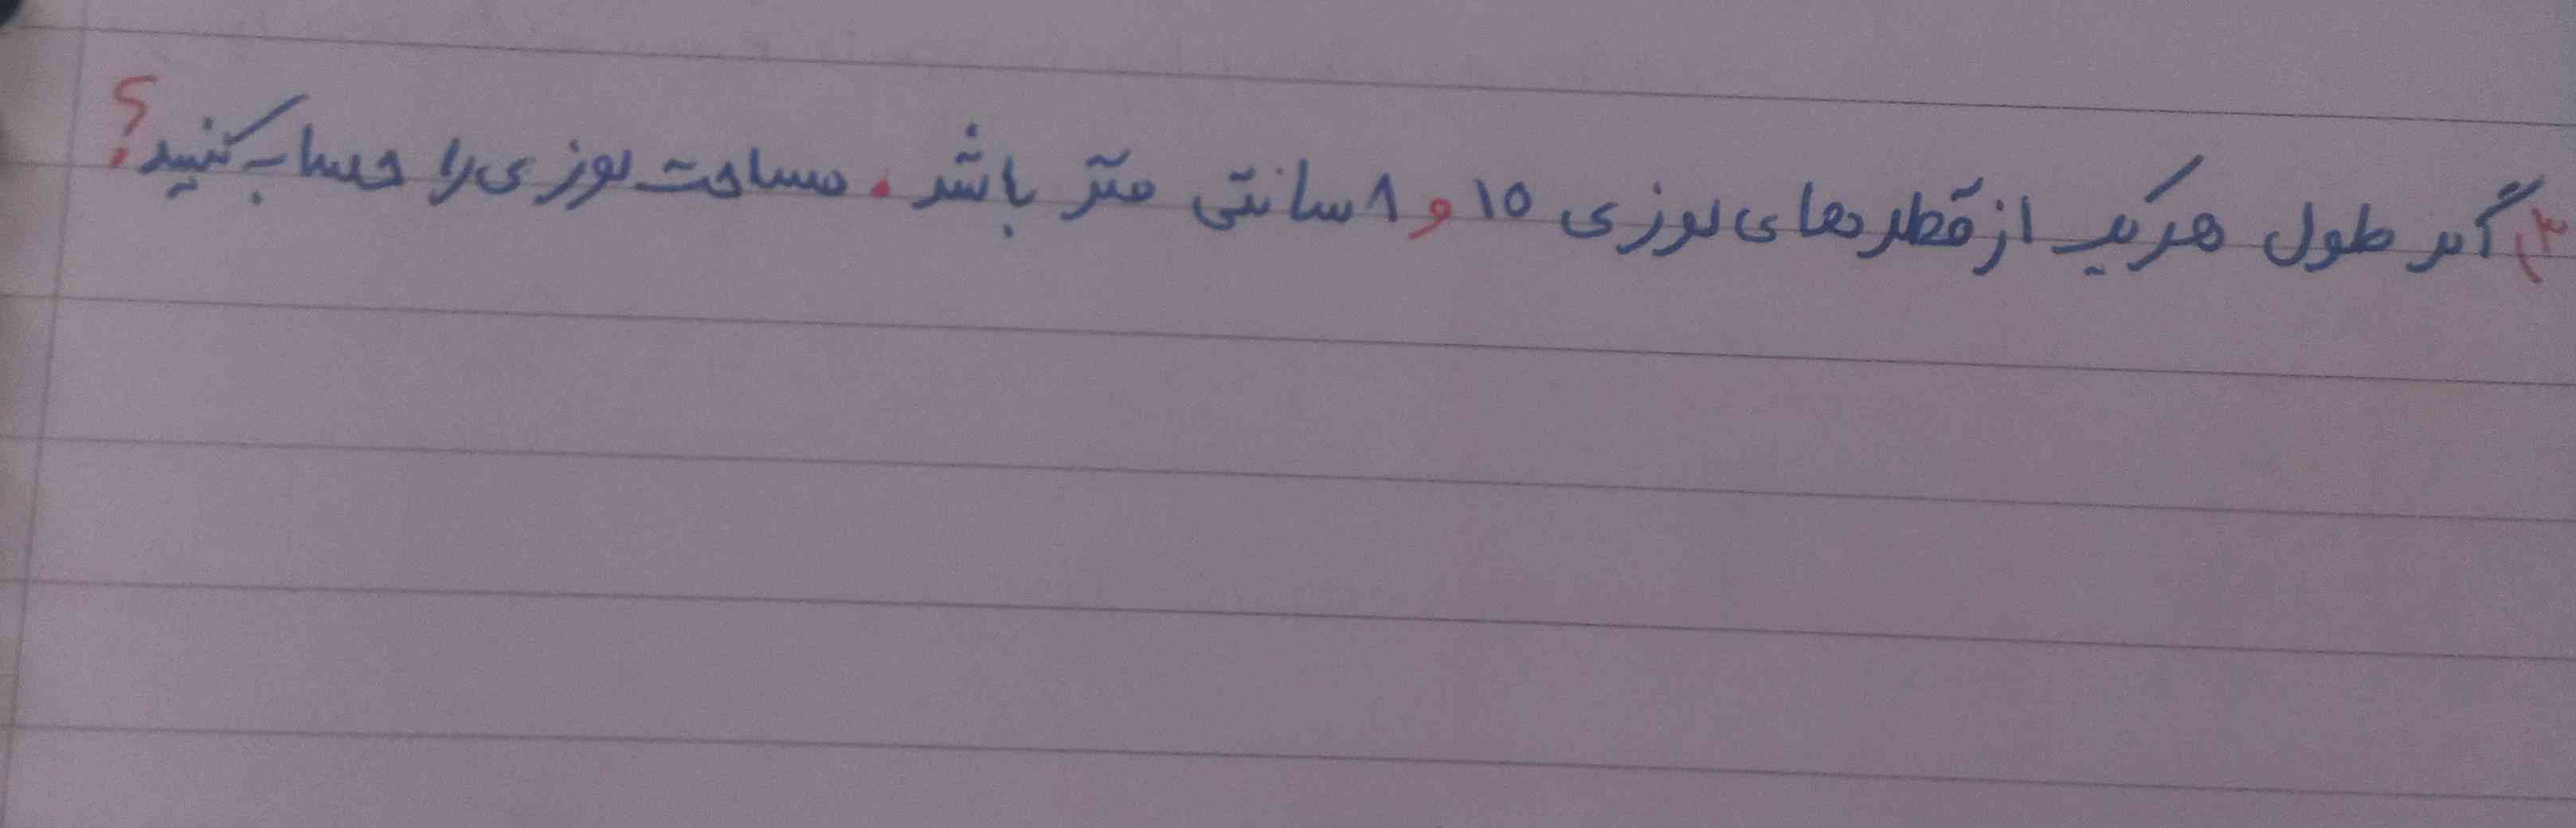 ۳) اگر طول هر یک از قطرهای لوزی ۱۵ و ۸ سانتی متر باشد. مساحت لوزی را حساب کنید؟